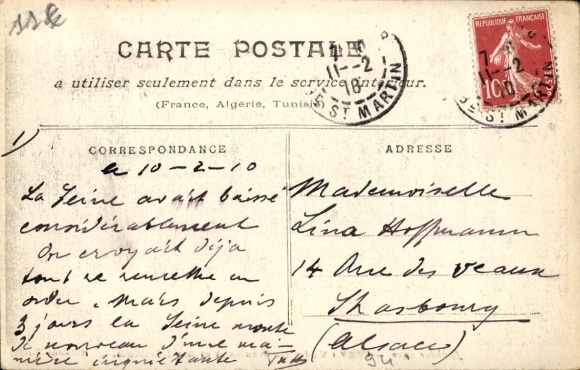 CARTE POSTALE
a utiliser seulement dans le service intérieur.
(France, Algérie, Tunisie)
RÉPUBLIQUE FRANÇAISE
10
POSTES
7
11 - 2
10
ST MARTIN
7
11 - 2
10
ST MARTIN
1)
CORRESPONDANCE
a 10-2-10
La Seine avait baissé
considérablement
On croyait déja
tout se remettre en
order, Mais depuis
3 jours la Seine monte
de nouveau d'une ma-
nière inquiétante
ADRESSE
Mademoiselle
Lina Hoffmann
14 Rue des veaux
Strasbourg
(Alsace)